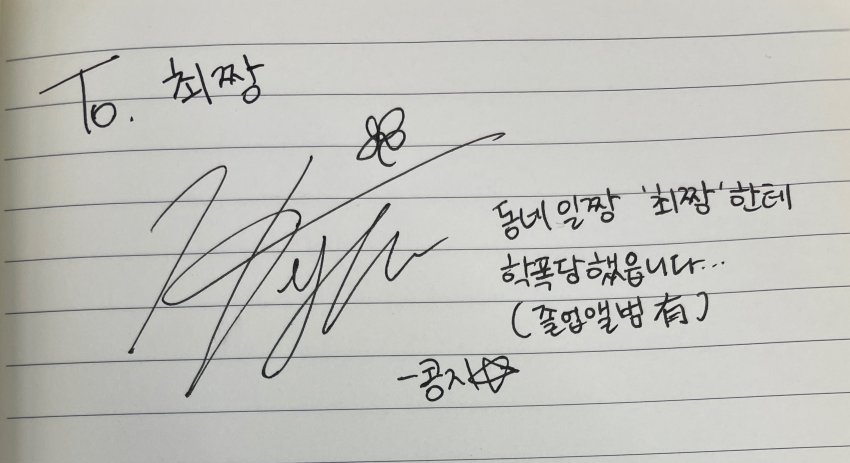 To. 최짱
동네 일짱 '최짬'한테
학폭당했읍니다...
(졸업앨범 有)
-콩지